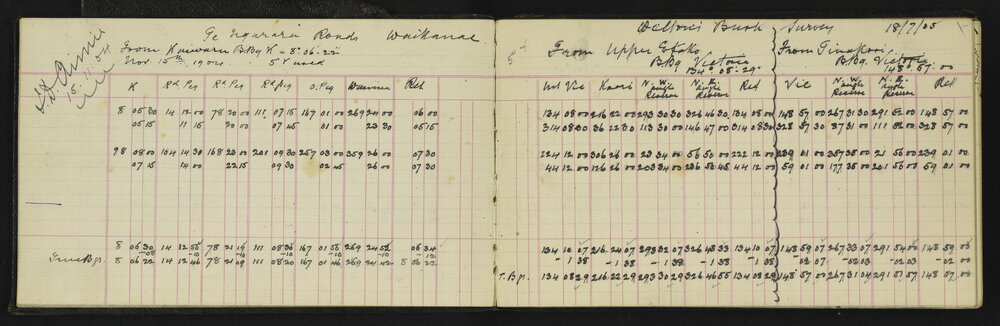 Te Ngarara Roads Waikanae
From Kaiwaru Bkg K = 8° 06' 22"
Nov 15th 1904. 5" used
15. 11. 04
K Rd Peg Rd Peg Rd Peg O. Peg Ret
8 06 30 14 12 00 78 20 00 111 07 15 167 01 00 269 24 00 06 00
05 15 11 15 20 00 07 45 01 00 23 30 05 15
98 08 00 104 14 30 168 23 00 201 09 30 257 03 00 359 26 00 07 30
07 15 14 00 22 15 09 30 02 45 26 00 07 30
8 06 30 14 12 56 78 21 19 111 08 36 167 01 56 269 24 52 06 34
True Bg. 8 06 22 14 12 46 78 21 09 111 08 20 167 01 46 269 24 42 8 06 22
Wiltons Bush Survey 18/7/05
From Upper Etako From Tinakori
Bkg Victoria Bkg Victoria
134° 08' 29" 148° 57' 00
Vic Kaori N. W. angle Reserve N. E. angle Reserve Ret Vic N. W. angle Reserve N. E. angle Reserve Ret
134 08 00 216 22 00 293 30 30 326 46 30 134 08 00 148 57 00 267 31 30 291 52 00 148 57 00
314 08 30 36 22 30 113 30 00 146 47 00 314 08 30 328 57 30 87 31 00 111 52 00 328 57 00
224 12 00 306 26 00 23 34 00 56 50 00 222 12 00 239 01 00 357 35 00 21 56 00 239 01 00
44 12 00 126 26 00 203 34 00 236 50 45 44 12 00 59 01 00 177 35 00 201 56 00 59 01 00
134 10 07 216 24 07 293 32 07 326 48 33 134 10 07 148 59 07 267 33 07 291 54 00 148 59 00
-1 38 -1 38 -1 38 -1 38 -1 38 -02 07 -02 03 -02 03 -02 00
T. Bg. 134 08 29 216 22 29 293 30 29 326 46 55 134 08 29 148 57 00 267 31 04 291 51 57 148 57 00